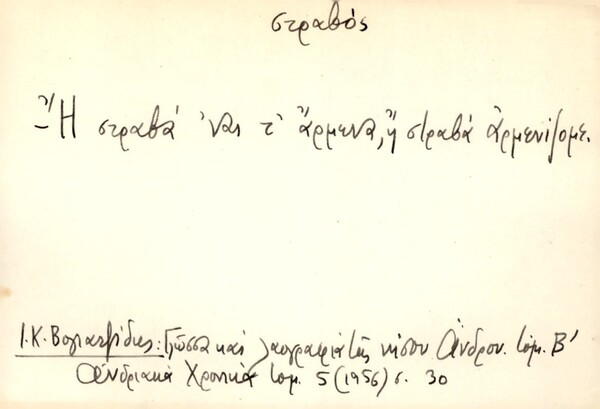 στραβός
–Ἢ στραβά 'ναι τ' ἄρμενα, ἢ στραβά ἀρμενίζομε.
Ι. Κ. Βογιατζίδης: Γλῶσσα καί λαογραφία τῆς νήσου Ἄνδρου. τόμ. Β'
Ἀνδριακά Χρονικά τομ. 5 (1956) σ. 30